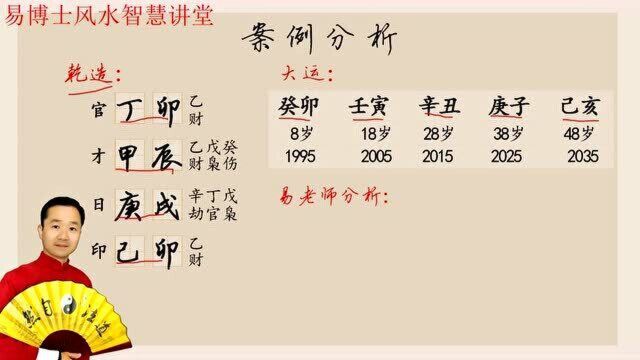 易博士风水智慧讲堂
案例分析
乾造：
官 丁 卯 乙 财
才 甲 辰 乙戊癸 财枭伤
日 庚 戌 辛丁戊 劫官枭
印 己 卯 乙 财
大运：
癸卯 壬寅 辛丑 庚子 己亥
8岁 18岁 28岁 38岁 48岁
1995 2005 2015 2025 2035
易老师分析：
道法自然